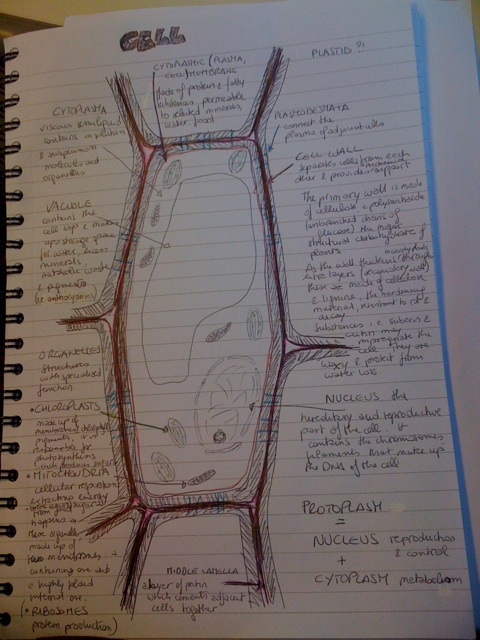 CELL
CYTOPLASMIC (PLASMA,
CELL) MEMBRANE
made of protein & fatty
substances, permeable
to selected minerals
water food
PLASTID ?!
CYTOPLASMA
viscous semiliquid
contains in solution
& suspension
molecules and
organelles
PLASMODESMATA
connect the
plasma of adjacent cells
CELL WALL
separates cells from each
other & provides mechanical support
The primary wall is made
of cellulose a polysaccharide
(unbranched chains of
glucose) the major
structural carbohydrate of
plants
As the wall thickens through
layers (secondary wall)
these are made of cellulose
& lignine, the hardening
material, resistant to rot &
decay.
Substances i.e suberin &
cutin may
impregnate the
cell they are
waxy & protect from
water loss
VACUOLE
contains the
cell sap & makes
up storage space
for water,
minerals
metabolic waste
& pigments
(ie anthocyanins)
ORGANELLES
structures
with specialised
function
• CHLOROPLASTS
made up of
pigments, it is
responsible for
photosynthesis
• MITOCHONDRIA
cellular respiration
extracting energy
from
happens in
these organelles
made up of
two membranes +
containing one with
a highly folded
internal one.
(• RIBOSOMES
protein production)
NUCLEUS the
hereditary and reproductive
part of the cell, it
contains the chromosomes
filaments that make up
the DNA of the cell
PROTOPLASM
=
NUCLEUS reproduction
& control
+
CYTOPLASM metabolism
MIDDLE LAMELLA
a layer of pectin
which cements adjacent
cells together